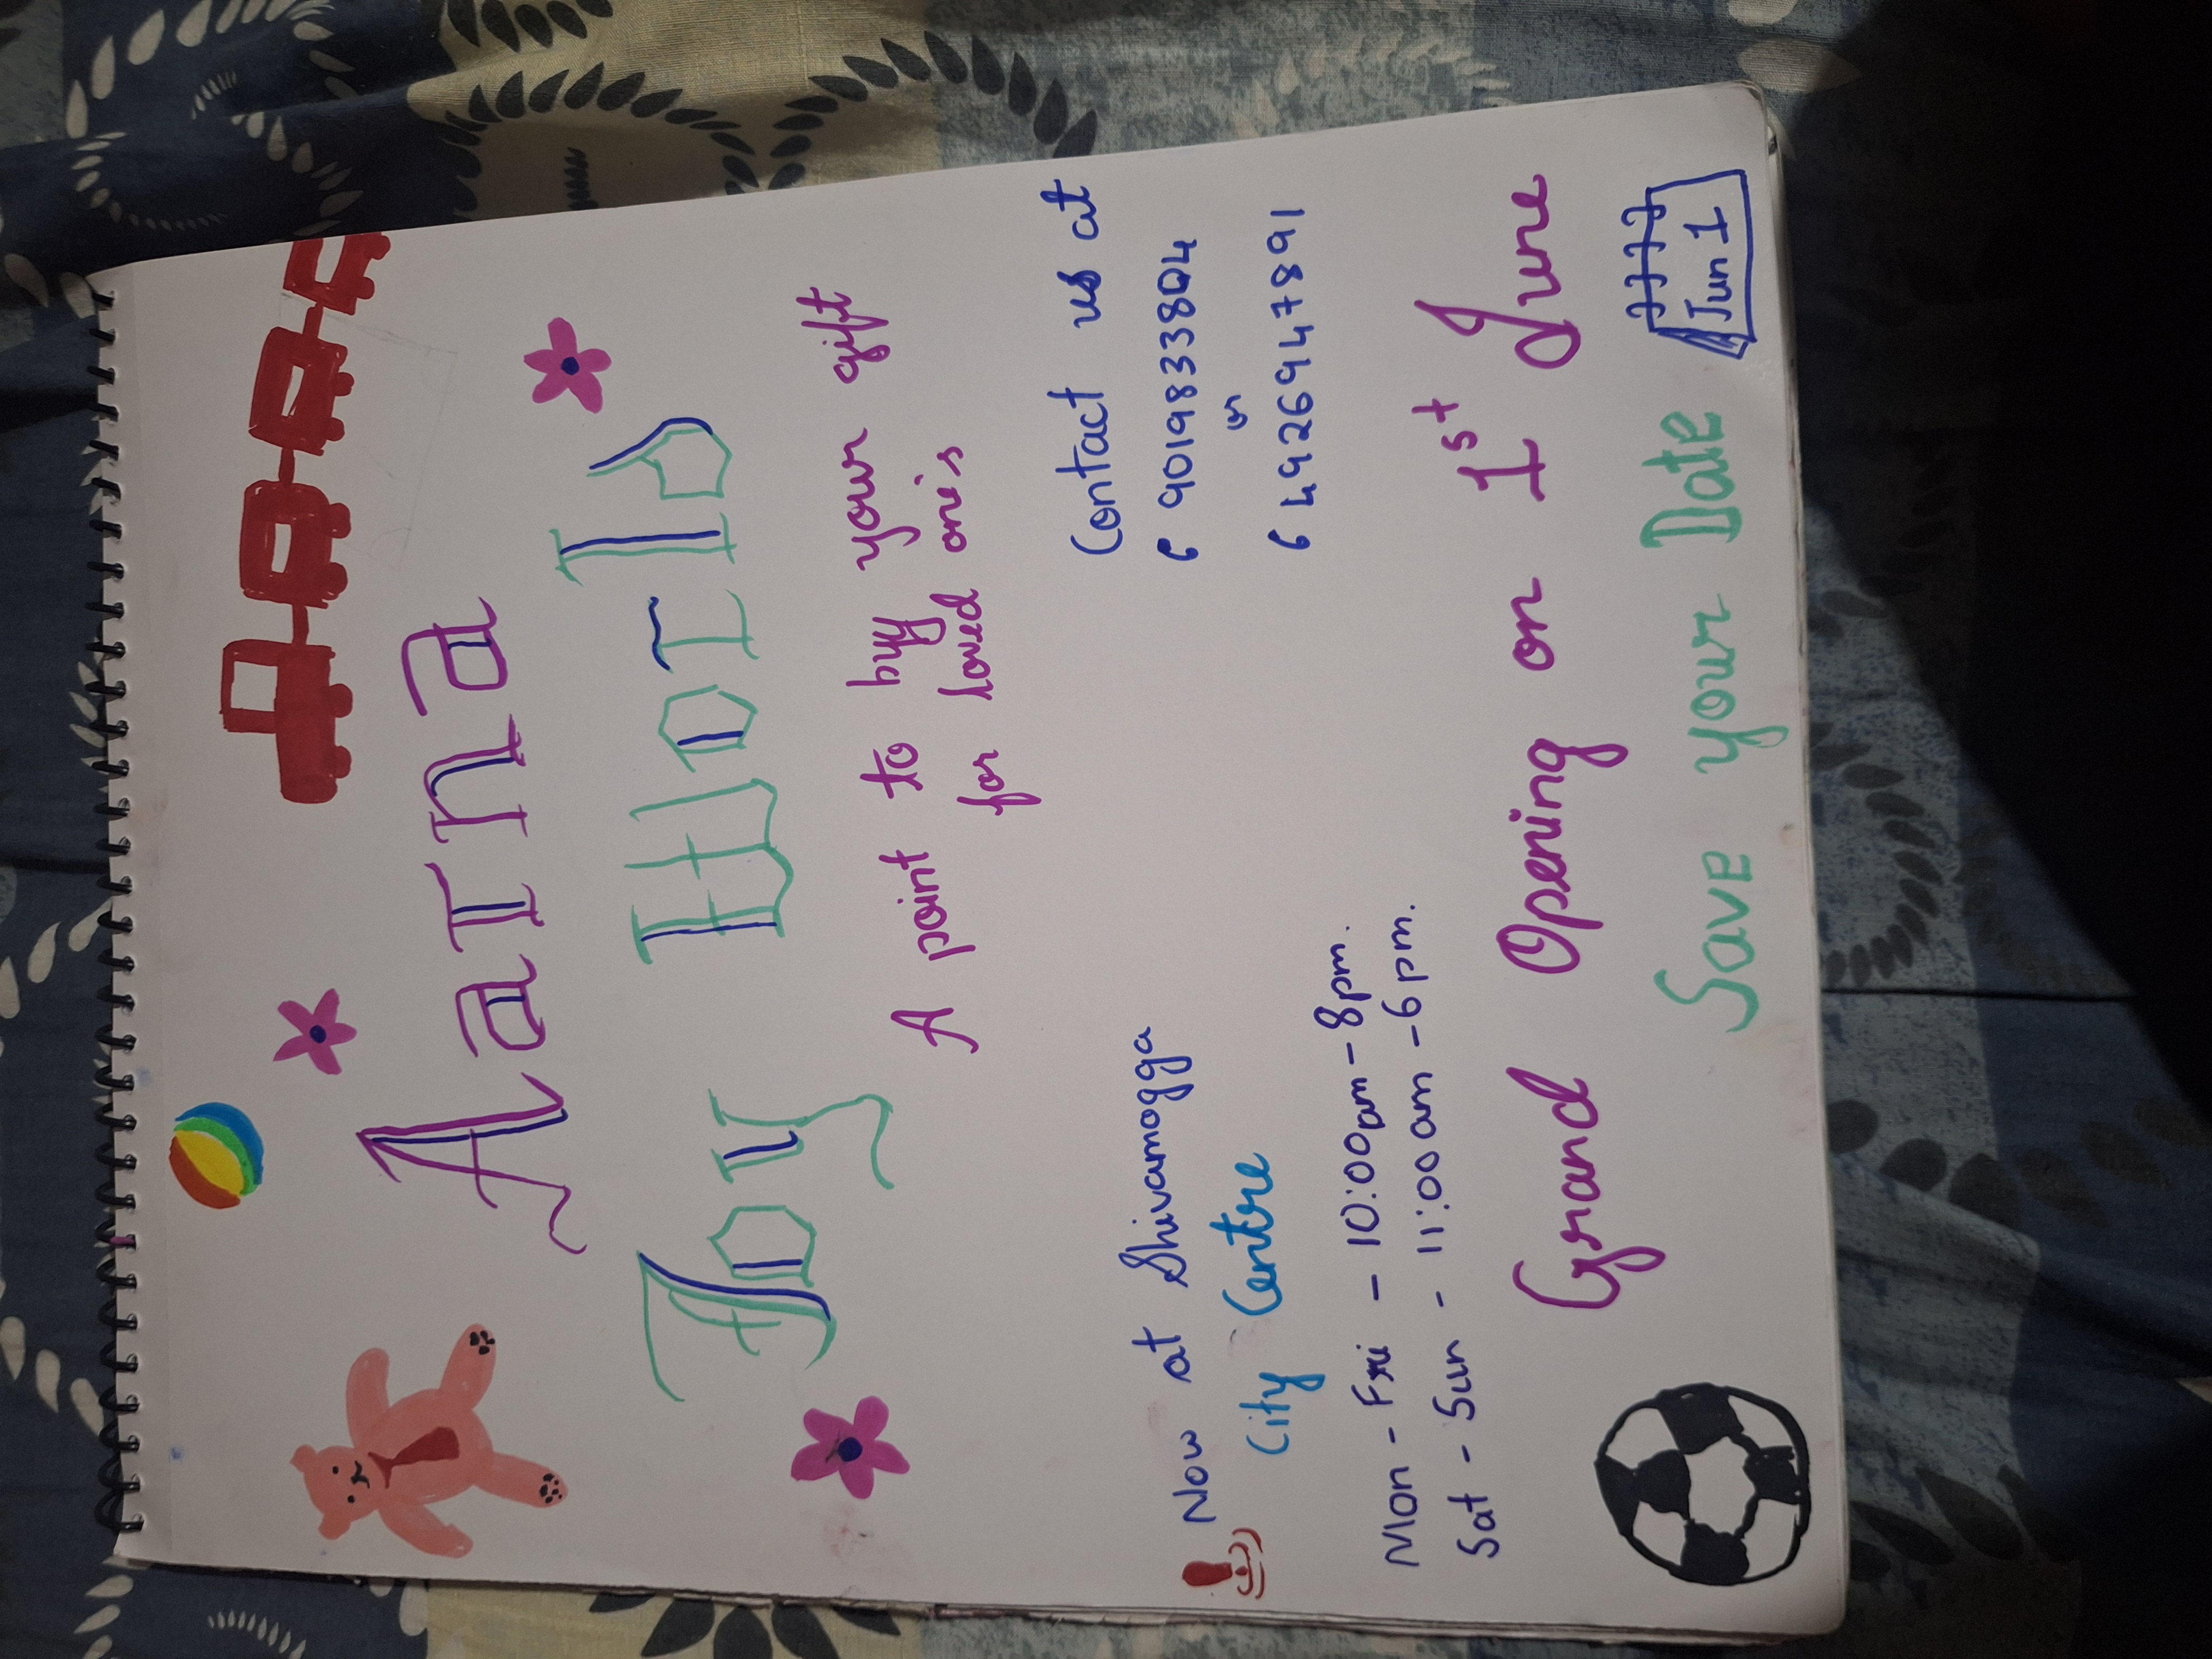 Aarna
Toy World
A point to byy your gift
for loved one's
Contact us at
9019833804
or
49269447891
Now at Shivamogga
City Centre
Mon - Fri - 10:00am - 8pm.
Sat - Sun - 11:00am - 6pm.
Grand Opening on 1st June
Save your Date
Jun 1